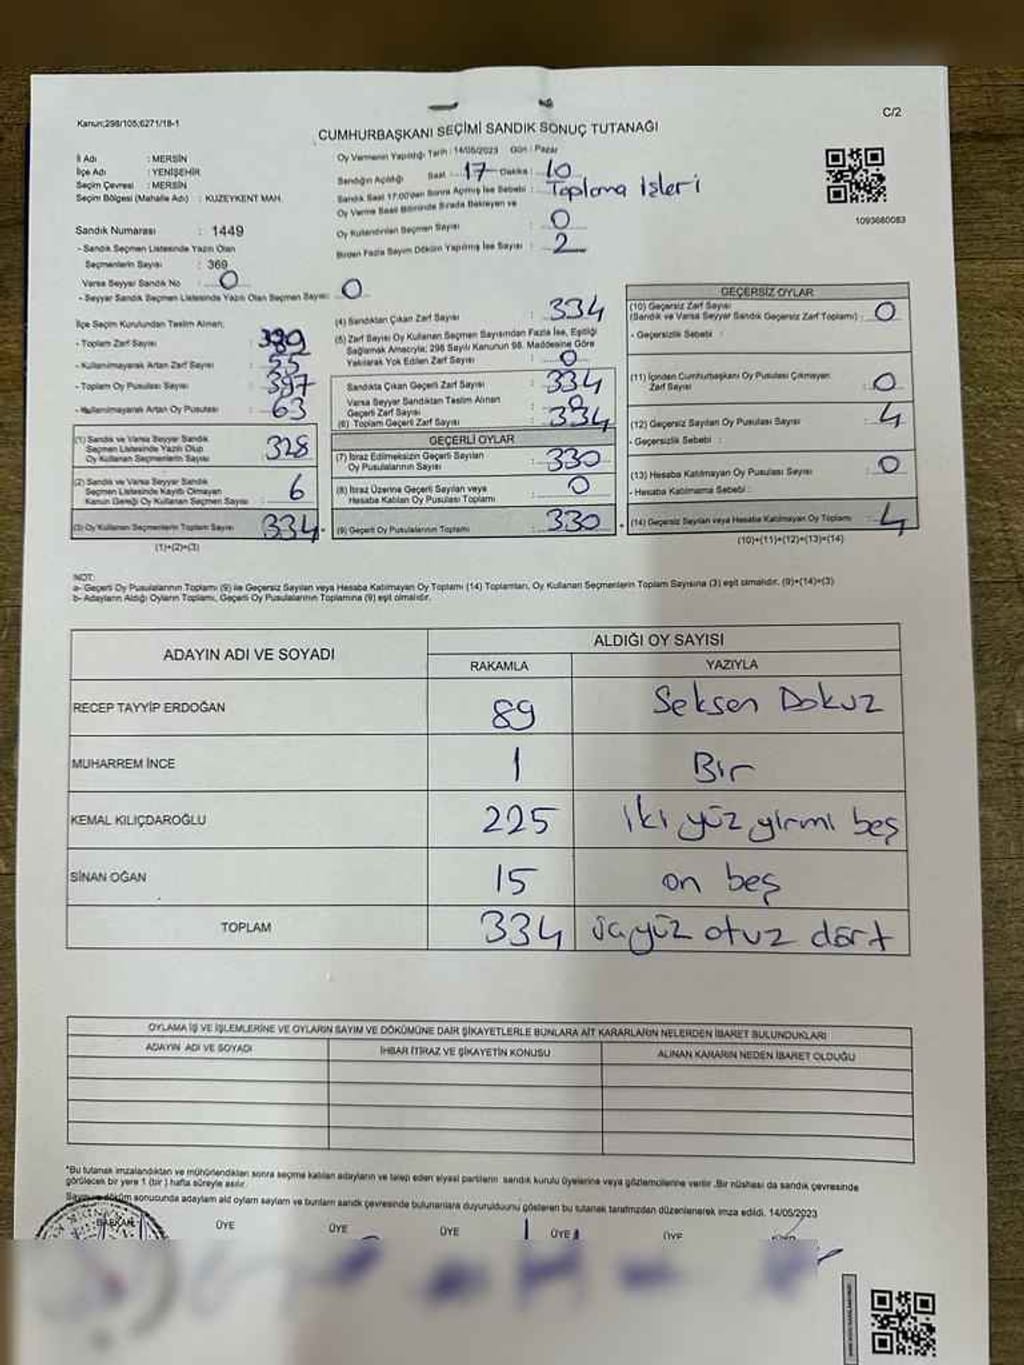 Kanun;298/105;6271/18-1
C/2
CUMHURBAŞKANI SEÇİMİ SANDIK SONUÇ TUTANAĞI
İl Adı : MERSİN
İlçe Adı : YENİŞEHİR
Seçim Çevresi : MERSİN
Seçim Bölgesi (Mahalle Adı) : KUZEYKENT MAH.
Oy Vermenin Yapıldığı Tarih : 14/05/2023 Gün : Pazar
Sandığın Açıldığı Saat : 17 Dakika : 10
Sandık Saat 17:00'den Sonra Açmış İse Sebebi : Toplama işleri
Oy Verme Saati Bitiminde Sırada Bekleyen ve
Oy Kullandırılan Seçmen Sayısı : 0
Birden Fazla Sayım Döküm Yapılmış İse Sayısı : 2
1093680083
Sandık Numarası : 1449
- Sandık Seçmen Listesinde Yazılı Olan
Seçmenlerin Sayısı : 369
Varsa Seyyar Sandık No : 0
- Seyyar Sandık Seçmen Listesinde Yazılı Olan Seçmen Sayısı: 0
İlçe Seçim Kurulundan Teslim Alınan;
- Toplam Zarf Sayısı :
- Kullanılmayarak Artan Zarf Sayısı : 55
- Toplam Oy Pusulası Sayısı : 397
- Kullanılmayarak Artan Oy Pusulası : 63
(1) Sandık ve Varsa Seyyar Sandık
Seçmen Listesinde Yazılı Olup
Oy Kullanan Seçmenlerin Sayısı : 328
(2) Sandık ve Varsa Seyyar Sandık
Seçmen Listesinde Kayıtlı Olmayan
Kanun Gereği Oy Kullanan Seçmen Sayısı : 6
(3) Oy Kullanan Seçmenlerin Toplam Sayısı : 334
(1)+(2)=(3)
(4) Sandıktan Çıkan Zarf Sayısı : 334
(5) Zarf Sayısı Oy Kullanan Seçmen Sayısından Fazla İse, Eşitliği
Sağlamak Amacıyla; 298 Sayılı Kanunun 98. Maddesine Göre
Yakılarak Yok Edilen Zarf Sayısı : 0
Sandıkta Çıkan Geçerli Zarf Sayısı : 334
Varsa Seyyar Sandıktan Teslim Alınan
Geçerli Zarf Sayısı : 0
(6) Toplam Geçerli Zarf Sayısı : 334
GEÇERLİ OYLAR
(7) İtiraz Edilmeksizin Geçerli Sayılan
Oy Pusulalarının Sayısı : 330
(8) İtiraz Üzerine Geçerli Sayılan veya
Hesaba Katılan Oy Pusulası Toplamı : 0
(9) Geçerli Oy Pusulalarının Toplamı : 330
GEÇERSİZ OYLAR
(10) Geçersiz Zarf Sayısı
(Sandık ve Varsa Seyyar Sandık Geçersiz Zarf Toplamı) : 0
- Geçersizlik Sebebi :
(11) İçinden Cumhurbaşkanı Oy Pusulası Çıkmayan
Zarf Sayısı : 0
(12) Geçersiz Sayılan Oy Pusulası Sayısı : 4
- Geçersizlik Sebebi :
(13) Hesaba Katılmayan Oy Pusulası Sayısı : 0
- Hesaba Katılmama Sebebi :
(14) Geçersiz Sayılan veya Hesaba Katılmayan Oy Toplamı : 4
(10)+(11)+(12)+(13)=(14)
NOT:
a- Geçerli Oy Pusulalarının Toplamı (9) ile Geçersiz Sayılan veya Hesaba Katılmayan Oy Toplamı (14) Toplamları, Oy Kullanan Seçmenlerin Toplam Sayısına (3) eşit olmalıdır. (9)+(14)=(3)
b- Adayların Aldığı Oyların Toplamı, Geçerli Oy Pusulalarının Toplamına (9) eşit olmalıdır.
ADAYIN ADI VE SOYADI ALDIĞI OY SAYISI
RAKAMLA YAZIYLA
RECEP TAYYİP ERDOĞAN 89 Seksen Dokuz
MUHARREM İNCE 1 Bir
KEMAL KILIÇDAROĞLU 225 iki yüz yirmi beş
SİNAN OĞAN 15 on beş
TOPLAM 334 üçyüz otuz dört
OYLAMA İŞ VE İŞLEMLERİNE VE OYLARIN SAYIM VE DÖKÜMÜNE DAİR ŞİKAYETLERLE BUNLARA AİT KARARLARIN NELERDEN İBARET BULUNDUKLARI
ADAYIN ADI VE SOYADI İHBAR İTİRAZ VE ŞİKAYETİN KONUSU ALINAN KARARIN NEDEN İBARET OLDUĞU
*Bu tutanak imzalandıktan ve mühürlendikten sonra seçime katılan adayların ve talep eden siyasi partilerin sandık kurulu üyelerine veya gözlemcilerine verilir. Bir nüshası da sandık çevresinde
görülecek bir yere 1 (bir) hafta süreyle asılır.
döküm sonucunda
sandık çevresinde bulunanlara duyurulduğunu gösteren bu tutanak tarafımızdan düzenlenerek imza edildi. 14/05/2023
BAŞKAN ÜYE ÜYE ÜYE ÜYE ÜYE